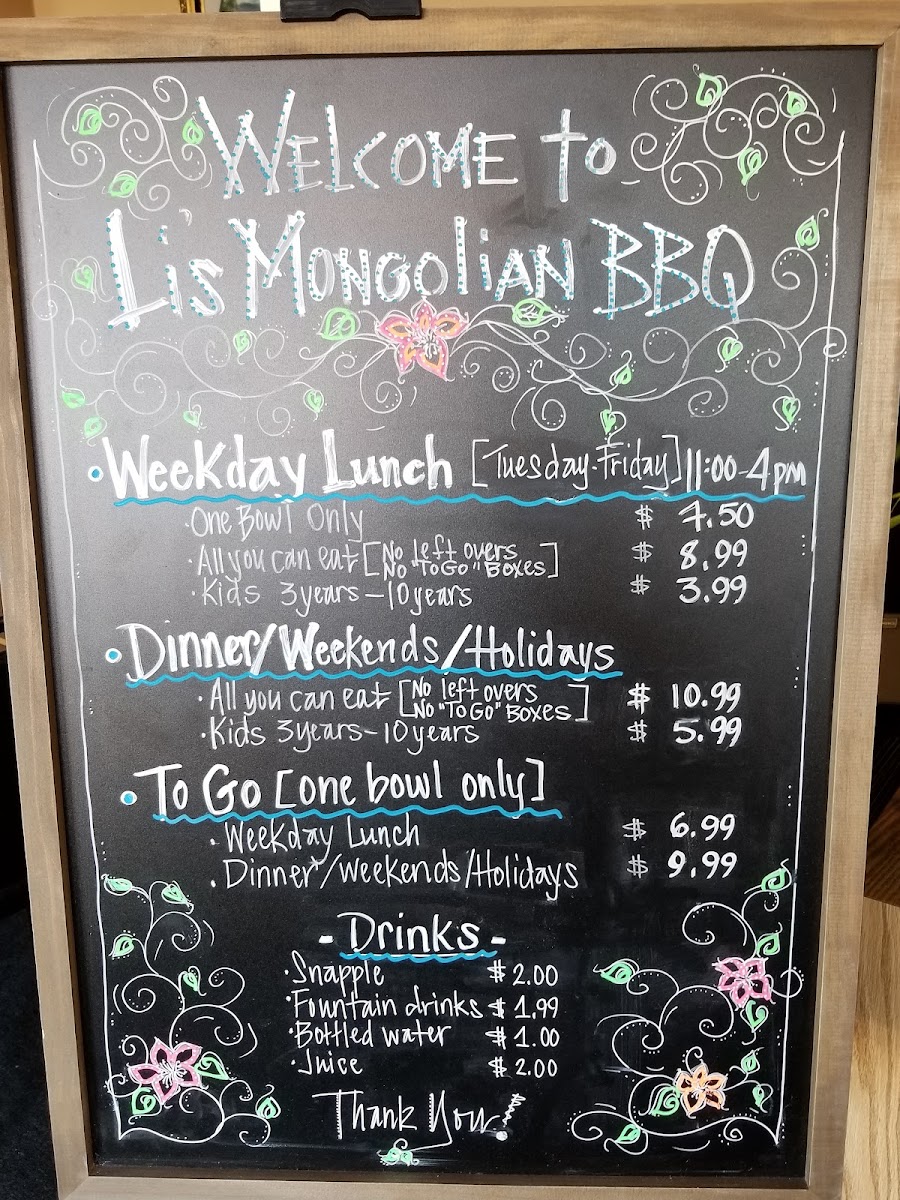 Welcome to
Li's Mongolian BBQ
• Weekday Lunch [Tuesday-Friday] 11:00-4pm
• One Bowl Only $ 7.50
• All you can eat [No left overs No "To Go" Boxes] $ 8.99
• Kids 3years-10years $ 3.99
• Dinner/Weekends/Holidays
• All you can eat [No left overs No "To Go" Boxes] $ 10.99
• Kids 3years-10years $ 5.99
• To Go [one bowl only]
• Weekday Lunch $ 6.99
• Dinner/Weekends/Holidays $ 9.99
- Drinks -
• Snapple $ 2.00
• Fountain drinks $ 1.99
• Bottled water $ 1.00
• Juice $ 2.00
Thank You!